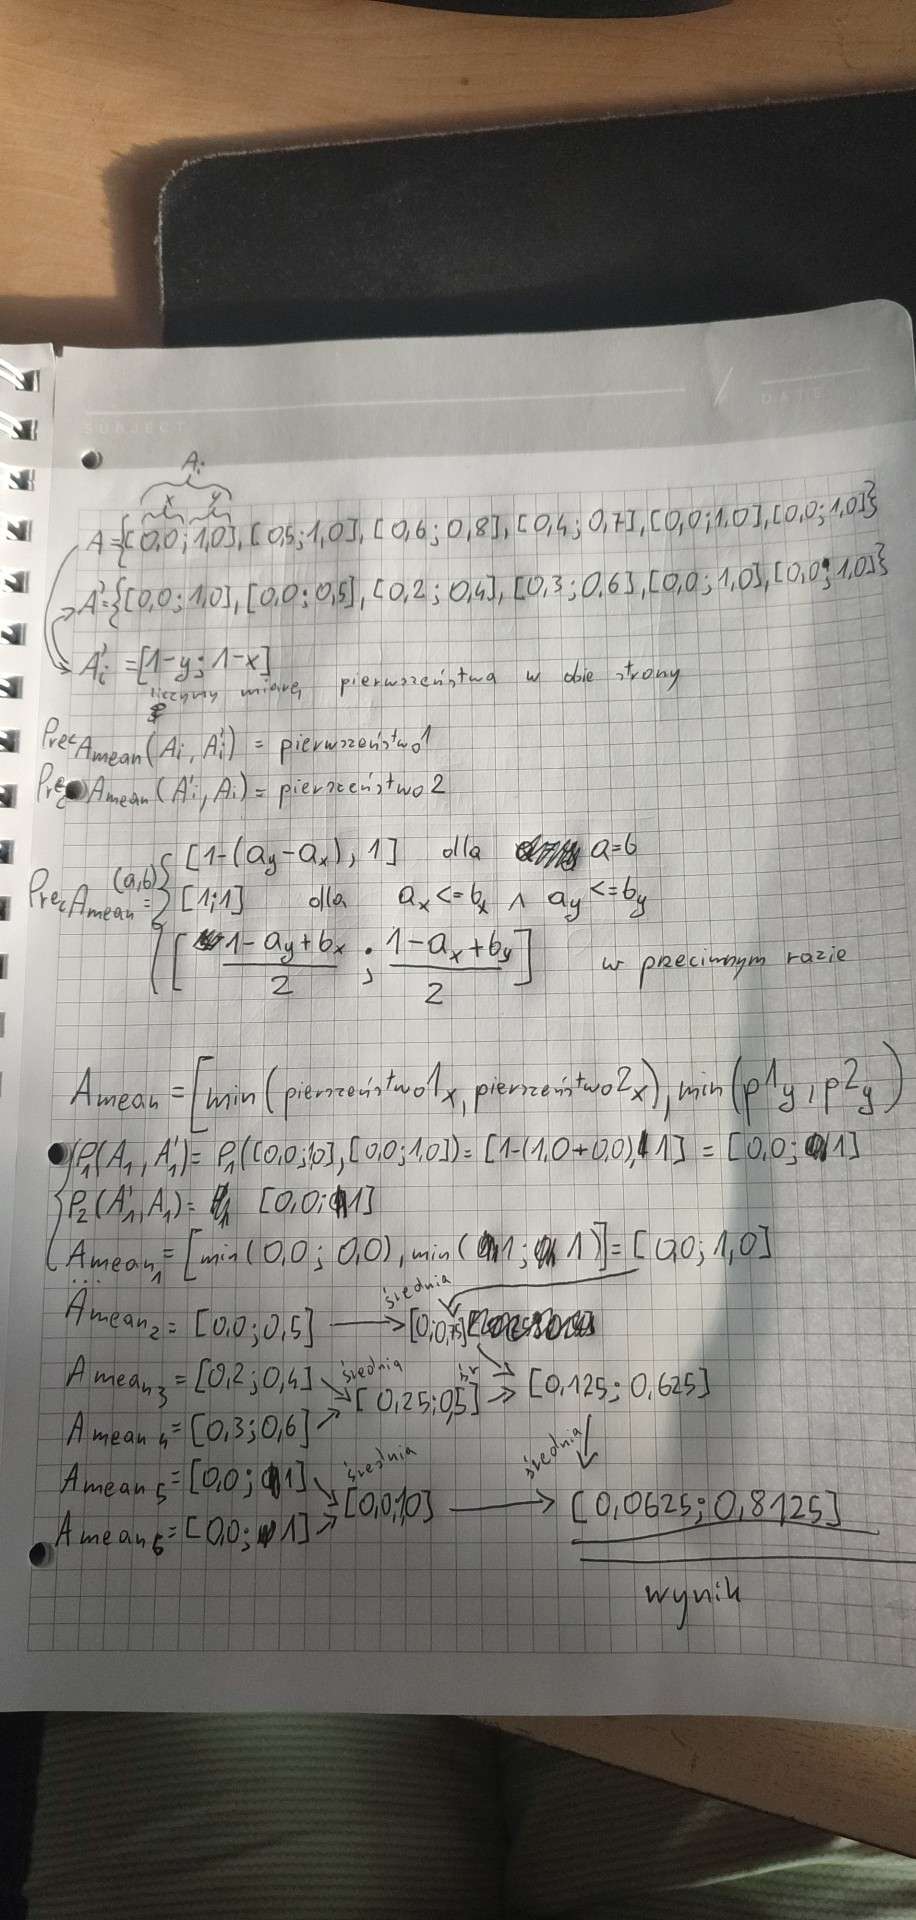 SUBJECT
DATE
Ai
x y
A={[0,0;1,0],[0,5;1,0],[0,6;0,8],[0,4;0,7],[0,0;1,0],[0,0;1,0]}
A'={[0,0;1,0],[0,0;0,5],[0,2;0,4],[0,3;0,6],[0,0;1,0],[0,0;1,0]}
A'i=[1-y;1-x]
liczymy miarę pierwszeństwa w obie strony
PrecAmean(Ai,A'i)=pierwszeństwo1
Prec Amean(A'i,Ai)=pierszeństwo2
[1-(ay-ax),1] dla a=b
PrecAmean(a,b)={ [1;1] dla ax<=bx ∧ ay<=by
[(1-ay+bx)/2 ; (1-ax+by)/2] w przeciwnym razie
Amean=[min(pierszeństwo1x,pierszeństwo2x),min(p1y,p2y)
P1(A1,A'1)=P1([0,0;1,0],[0,0;1,0])=[1-(1,0+0,0),1]=[0,0;1]
P2(A'1,A1)=[0,0;1]
Amean1=[min(0,0;0,0),min(1;1)]=[0,0;1,0]
...
Amean2=[0,0;0,5] średnia [0;0,75]
Amean3=[0,2;0,4] średnia [0,25;0,5] śr [0,125;0,625]
Amean4=[0,3;0,6]
Amean5=[0,0;1] średnia [0,0;1,0] średnia [0,0625;0,8125]
Amean6=[0,0;1]
wynik